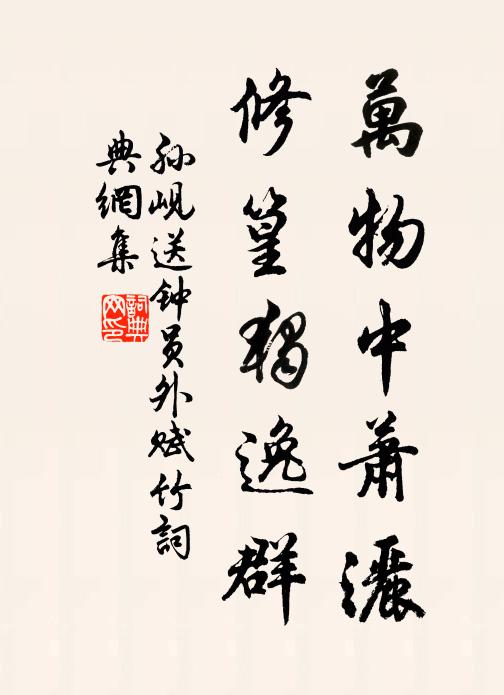 萬物中蕭灑
修篁獨逸群
孙岘送钟员外赋竹詞
典網集
詞典
网印